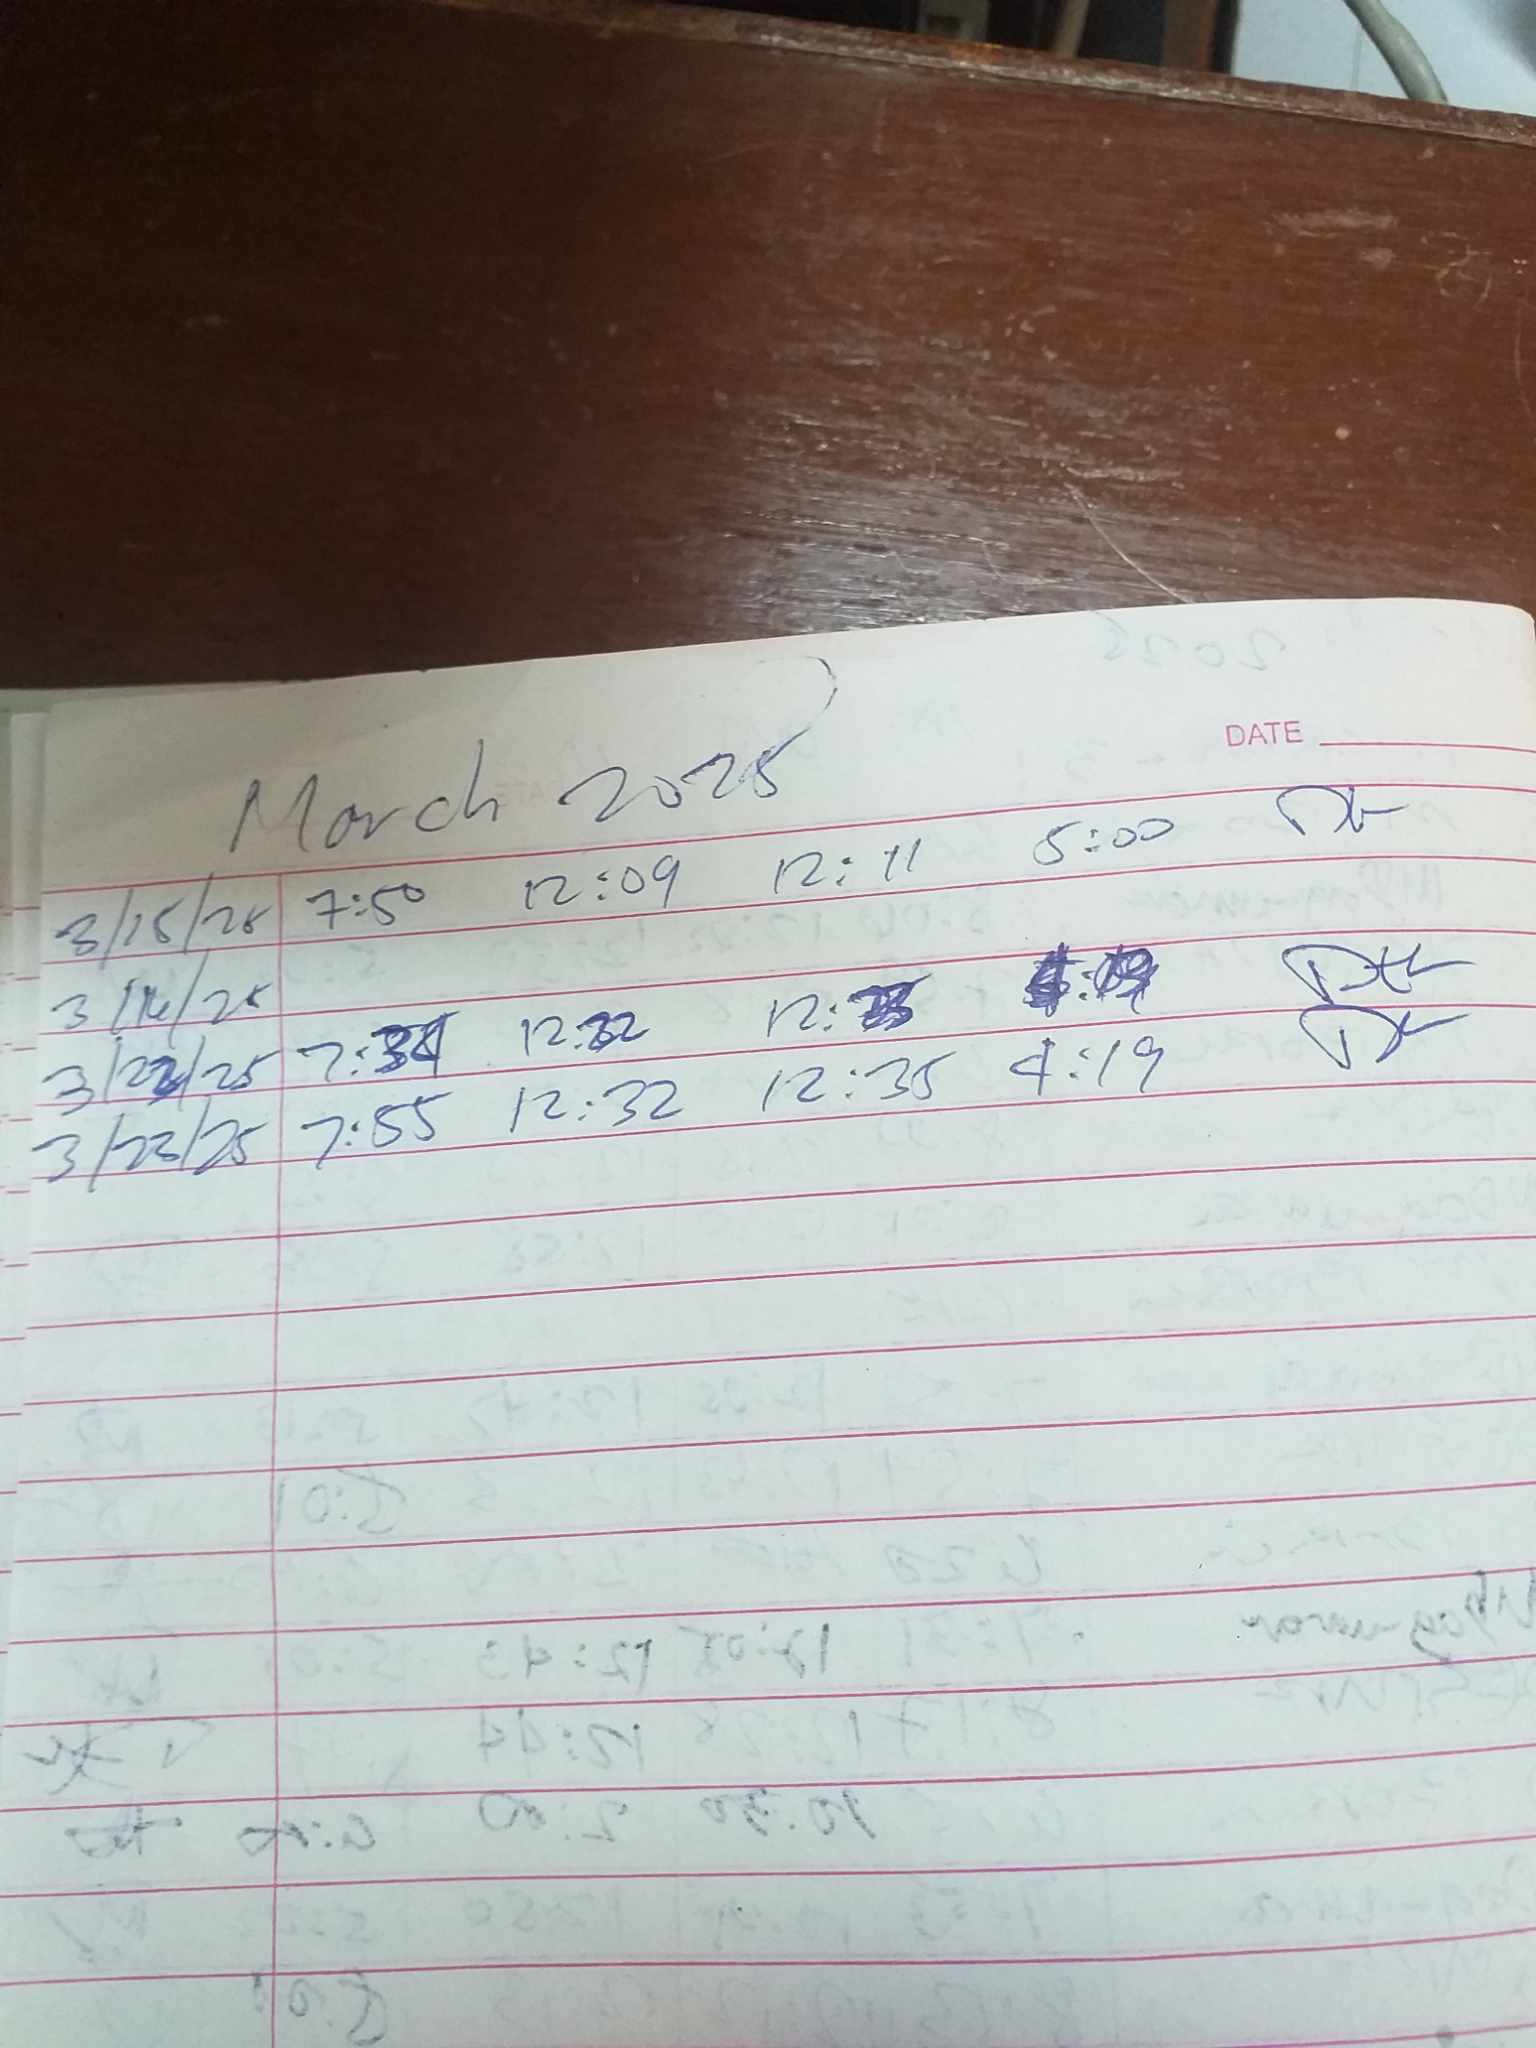 DATE
March 2025
3/15/25 7:50 12:09 12:11 5:00
3/16/25
3/22/25 7:34 12:32 12:35 4:19
3/23/25 7:55 12:32 12:35 4:19